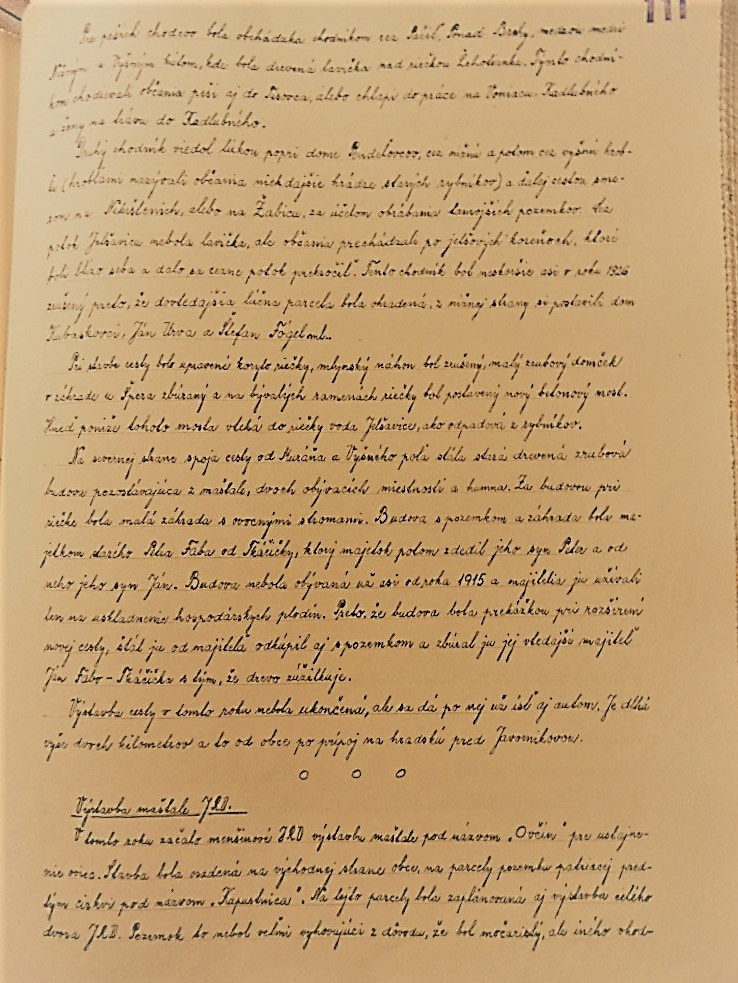 111
Pre peších chodcov bola obchádzka chodníkom cez Ponad Brehy, medzou medzi
Nižným a Vyšným kútom, kde bola drevená lavička nad riečkou Lehotianka. Týmto chodní-
kom chodievali občania peši aj do Tisovca, alebo chlapi do práce na Vomiacu, Kadlubného
a ženy na trávu do Kadlubného.
Druhý chodník viedol lúkou popri dome cez a potom cez vyšnú hrob-
ľu (hrobľami nazývali občania niekdajšie hrádze starých rybníkov) a ďalej cestou sme-
rom na alebo na Žabicu, za účelom obrábania tamojších pozemkov. Cez
potok Jelšavicu nebola lavička, ale občania prechádzali po jelšových koreňoch, ktoré
boli blízo seba a dalo sa cezne potok prekročiť. Tento chodník bol neskoršie asi v roku 1926
zrušený preto, že dovtedajšia lúčna parcela bola ohradená, z nižnej strany si postavili dom
Kubaskovci, Ján Urva a Štefan Fógel ml.
Pri stavbe cesty bolo upravené koryto riečky, mlynský náhon bol zrušený, malý zrubový domček
v záhrade u Špera zbúraný a na bývalých ramenách riečky bol postavený nový betonový most.
Hneď poniže tohoto mosta vteká do riečky voda Jelšavice, ako odpadová z rybníkov.
Na severnej strane spoja cesty od Muráňa a Vyšného poľa stála stará drevená zrubová
budova pozostávajúca z maštale, dvoch obývacích miestností a humna. Za budovou pri
riečke bola malá záhrada s ovocnými stromami. Budova s pozemkom a záhrada bola ma-
jetkom starého Petra Fába od Tkáčičky, ktorý majetok potom zdedil jeho syn Peter a od
neho jeho syn Ján. Budova nebola obývaná už asi od roka 1915 a majitelia ju užívali
len na uskladnenie hospodárskych plodín. Preto, že budova bola prekážkou pri rozšírení
novej cesty, štát ju od majiteľa odkúpil aj s pozemkom a zbúral ju jej vtedajší majiteľ
Ján Fábo - Tkáčička s tým, že drevo zúžitkuje.
Výstavba cesty v tomto roku nebola ukončená, ale sa dá po nej už ísť aj autom. Je dlhá
vyše dvoch kilometrov a to od obce po prípoj na hradskú pred Javorníkovou.
o o o
Výstavba maštale JRD.
V tomto roku začalo menšinové JRD výstavbu maštale pod názvom „Ovčín" pre ustajne-
nie oviec. Stavba bola osadená na východnej strane obce, na parcely pozemku patriacej pred-
tým cirkvi pod názvom „Kapustnica". Na tejto parcely bola zaplánovaná aj výstavba celého
dvora JRD. Pozemok to nebol veľmi vyhovujúci z dôvodu, že bol močaristý, ale iného vhod-